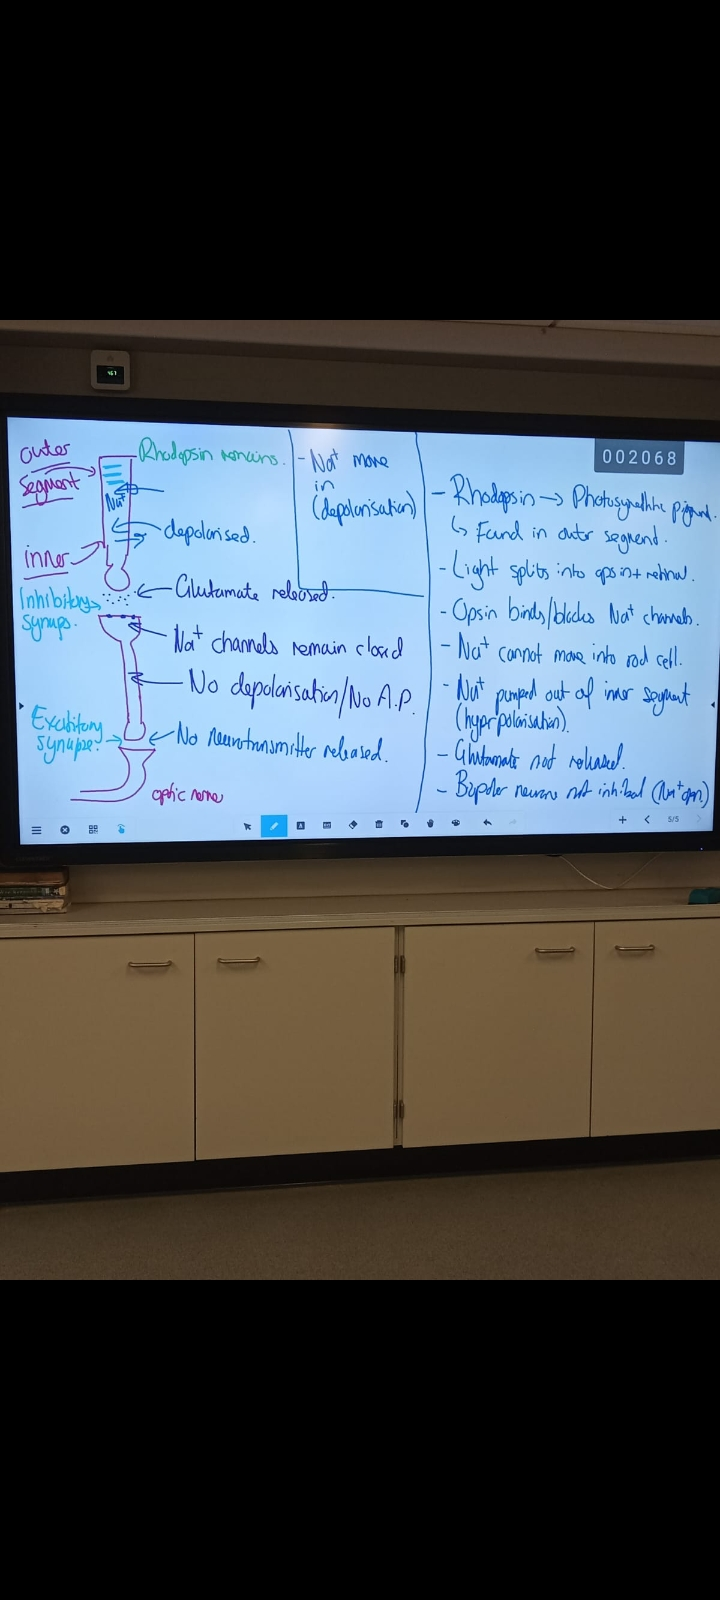 outer
segment
Rhodopsin remains.
Na⁺
depolarised.
inner
Glutamate released.
Inhibitory
synaps.
Na⁺ channels remain closed
No depolarisation/No A.P.
Excititory
synapse
No neurotransmitter released.
optic nerve
- Na⁺ move
in
(depolarisation)
002068
- Rhodopsin → Photosynethitic pigment.
↳ Found in outer segment.
- Light splits into opsin + retinal.
- Opsin binds/blocks Na⁺ channels.
- Na⁺ cannot move into rod cell.
- Na⁺ pumped out of inner segment
(hyperpolarisation).
- Glutamate not released.
- Bipolar neurone not inhibited (Na⁺ open)
5/5